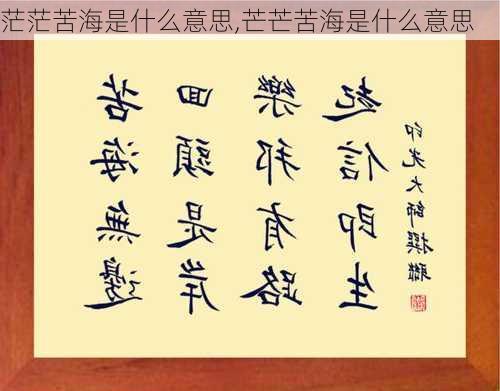 茫茫苦海是什么意思,芒芒苦海是什么意思
苦海無邊
回頭是岸
樂邦有路
起信即生
印光大師撰聯